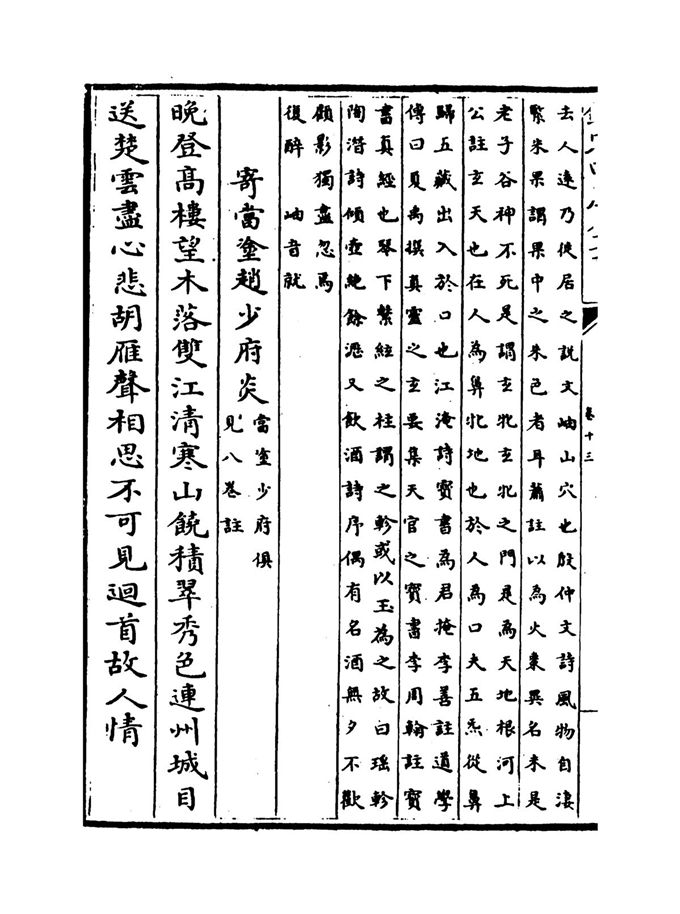 卷十三
去人遠乃使居之説文岫山穴也殷仲文詩風物自淒
緊朱果謂果中之朱色者耳蕭註以為火棗異名未是
老子谷神不死是謂𤣥牝𤣥牝之門是為天地根河上
公註𤣥天也在人為鼻牝地也於人為口夫五炁從鼻
歸五藏出入於口也江淹詩寳書為君掩李善註道學
傳曰夏禹撰真靈之𤣥要集天官之寳書李周翰註寳
書真經也琴下繫絃之柱謂之軫或以玉為之故曰瑶軫
陶潛詩傾壺絶餘瀝又飲酒詩序偶有名酒無夕不歡
顧影獨盡忽焉
復醉　岫音就
寄當塗趙少府炎
當塗少府俱
見八卷註
晚登髙樓望木落雙江清寒山饒積翠秀色連州城目
送楚雲盡心悲胡雁聲相思不可見迴首故人情